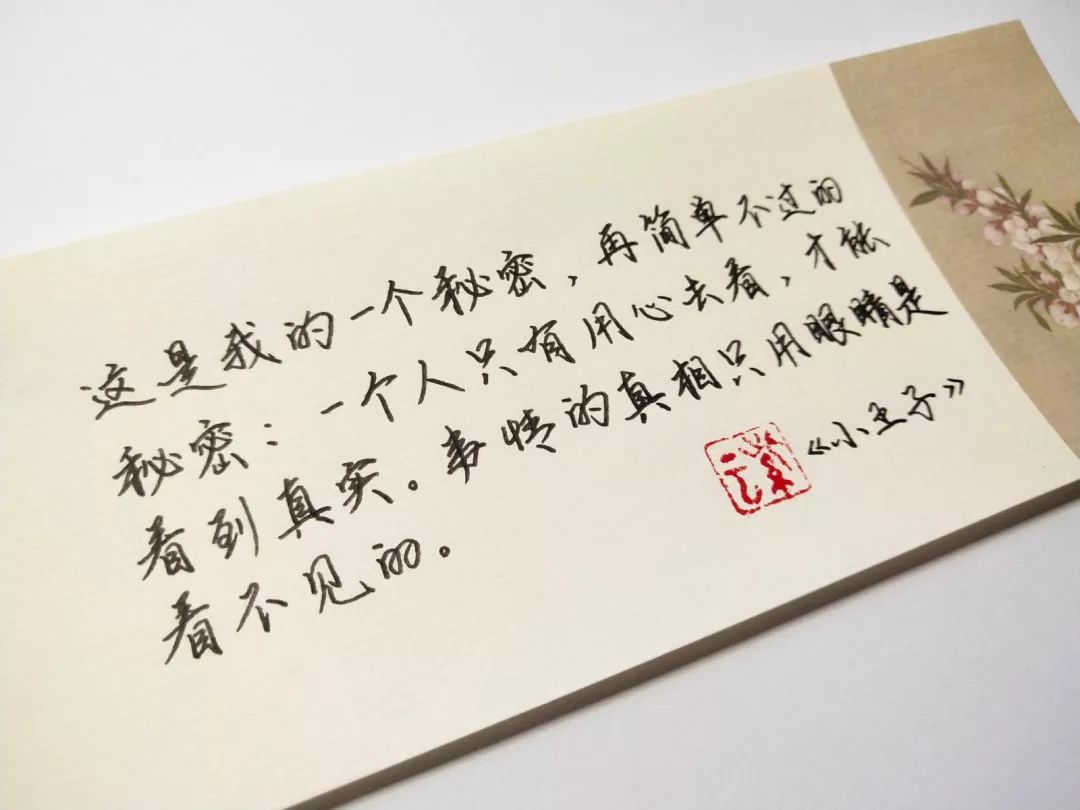 这是我的一个秘密，再简单不过的
秘密：一个人只有用心去看，才能
看到真实。事情的真相只用眼睛是
看不见的。
《小王子》